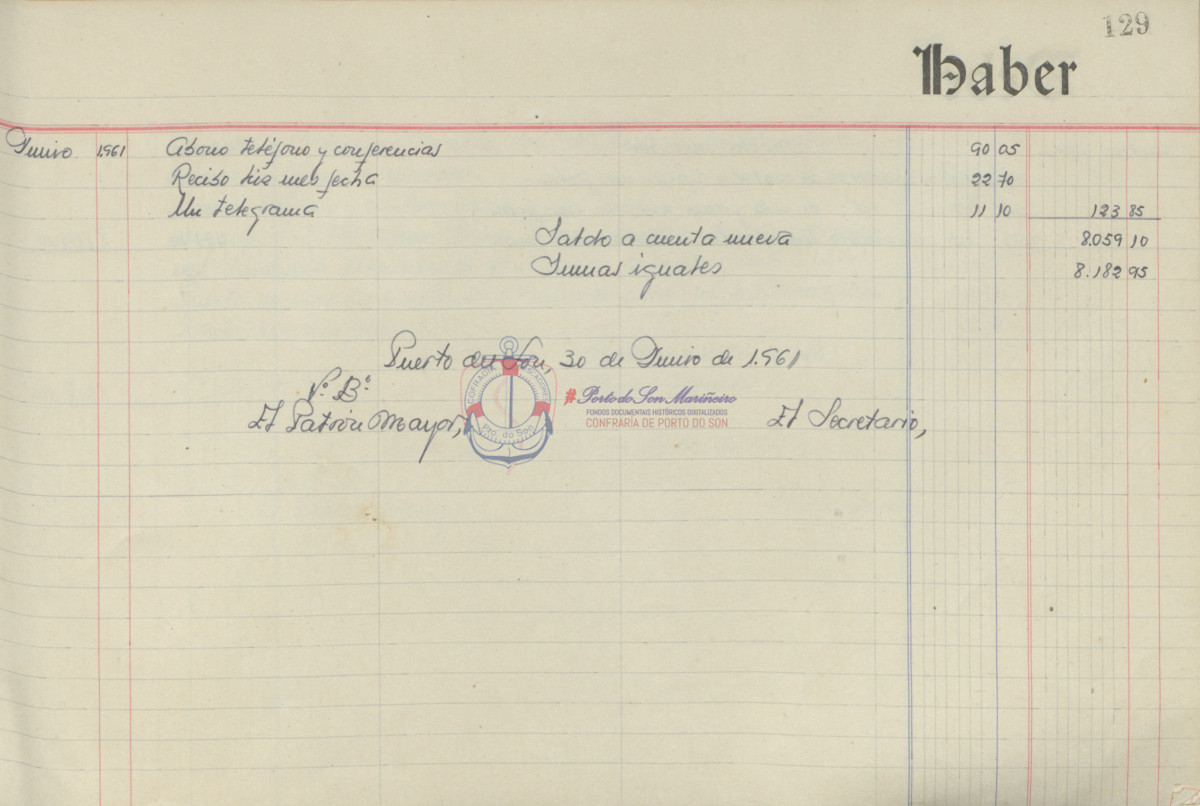 129
Haber
Junio 1.961 Abono teléfono y conferencias 90 05
Recibo luz mes fecha 22 70
Un telegrama 11 10 123 85
Saldo a cuenta nueva 8.059 10
Sumas iguales 8.182 95
Puerto del Son, 30 de Junio de 1.961
Vº Bº
El Patrón Mayor, El Secretario,
COFRADÍA PESCADORES
Pto. do Son
#Porto do Son Mariñeiro
FONDOS DOCUMENTAIS HISTÓRICOS DIGITALIZADOS
CONFRARÍA DE PORTO DO SON